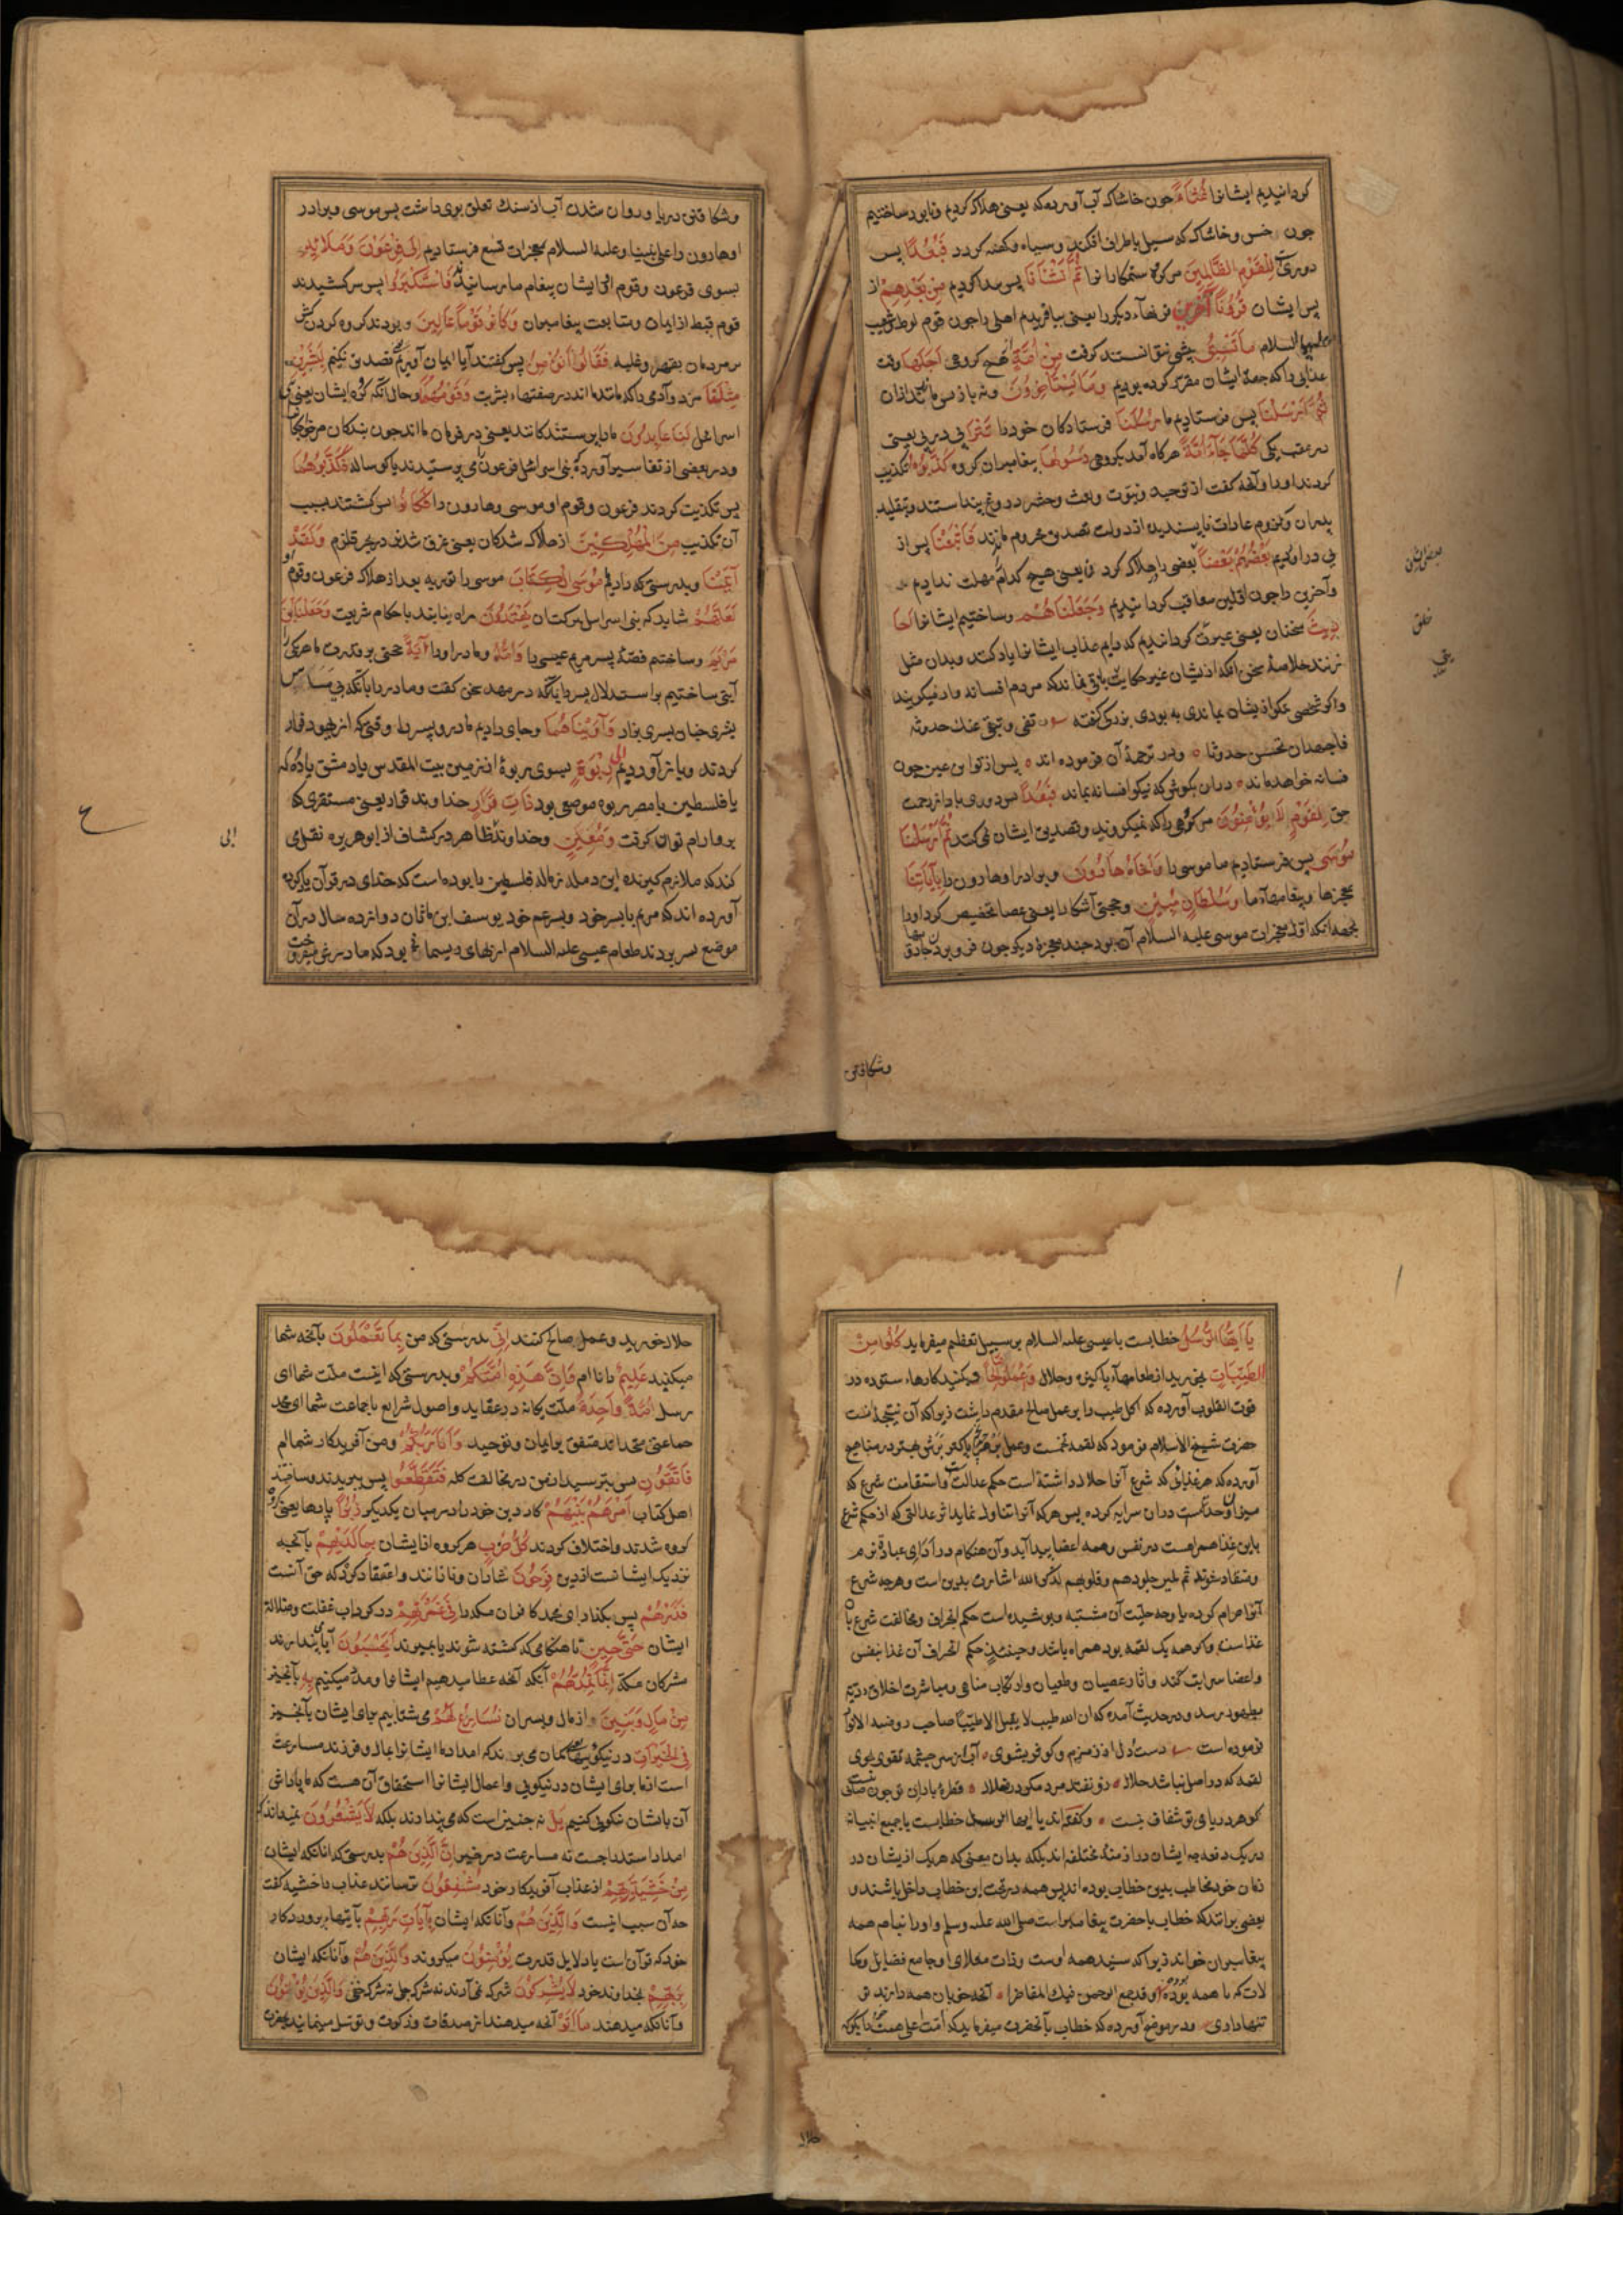 کردانیدیم ایشانرا غُثَآءً چون خاشاک آب آورده که یعنی هلاک کردیم و نابود ساختیم
چون خس و خاشاک که سیل باطراف افکند و سیاه و کهنه کردد فَبُعْدًا پس
دوری لِلْقَوْمِ الظَّالِمِينَ مر کروه ستمکارانرا ثُمَّ أَنْشَأْنَا پس پیدا کردیم مِنْ بَعْدِهِمْ از
پس ایشان قُرُونًا آخَرِينَ قرنهاء دیکر را یعنی بیافریدیم اهلی را چون قوم لوط و شعیب
علیهما السلام مَا تَسْبِقُ پیشی نتوانستند کرفت مِنْ أُمَّةٍ هیچ کروهی أَجَلَهَا وقت
عذابی را که جهة ایشان مقرر کرده بودیم وَمَا يَسْتَأْخِرُونَ و نه باز پس ماندند ازان
ثُمَّ أَرْسَلْنَا پس فرستادیم ما رُسُلَنَا فرستادکان خود را تَتْرَا پی در پی یعنی
در عقب یکی كُلَّمَا جَآءَ أُمَّةً هرکاه آمد بکروهی رَسُولُهَا پیغامبر ایشان کروه كَذَّبُوهُ تکذیب
کردند او را و آنچه کفت از توحید و نبوت و بعث و حشر دروغ پنداستند و بتقلید
پدران و لزوم عادات ناپسندیده از دولت تصدیق محروم ماندند فَأَتْبَعْنَا پس از
پی در آوردیم بَعْضَهُمْ بَعْضًا بعضی را هلاک کردن یعنی هیچ کدام را مهلت ندادیم
و آخرین را چون اولین معاقب کردانیدیم وَجَعَلْنَاهُمْ و ساختیم ایشانرا أَحَا
دِيثَ سخنان یعنی عبرت کردانیدیم که دایم عذاب ایشانرا یاد کنند و بدان مثل
زنند خلاصهٔ سخن آنکه از ایشان غیر حکایت باقی نماند که مردم افسانه وار میکویند
و اکر شخصی نیکو از ایشان بماندی به بودی بزرکی کفته تفنی و تبقی عنک حدوثه
فاجهد ان تحسن حدوثا و در ترجمهٔ آن فرموده اند پس از تو این عین چون
فسانه خواهد ماند دران بکوش که نیکو افسانه بماند فَبُعْدًا پس دوری باد از رحمت
حق لِقَوْمٍ لَا يُؤْمِنُونَ مر کروهی را که نمیکروند و تصدیق ایشان نمی کنند ثُمَّ أَرْسَلْنَا
مُوسَى پس فرستادیم ما موسی را وَأَخَاهُ هَارُونَ و برادر او هارون را بِآيَاتِنَا
بمعجزها و پیغامهاء ما وَسُلْطَانٍ مُبِينٍ و حجتی آشکارا یعنی عصا تخصیص کرد او را
بجهة آنکه اول معجزات موسی علیه السلام آن بود چند معجزهٔ دیکر چون فرو بردن جادو
وشکافتن
وشکافتن دریا و روان شدن آب از سنک تعلق بوی داشت پس موسی و برادر
او هارون را علی نبینا و علیه السلام بمعجزات تسع فرستادیم إِلَى فِرْعَوْنَ وَمَلَائِهِ
بسوی فرعون و قوم او ایشان پیغام ما رسانیدند فَاسْتَكْبَرُوا پس سرکشیدند
قوم قبط از ایمان و متابعت پیغامبران وَكَانُوا قَوْمًا عَالِينَ و بودند کروه کردن کش
بر مردمان بقهر و غلبه فَقَالُوا أَنُؤْمِنُ پس کفتند آیا ایمان آوریم و تصدیق کنیم لِبَشَرَيْنِ
مِثْلِنَا مر دو آدمی را که مانند ما اند در صفتهاء بشریت وَقَوْمُهُمَا و حال آنکه کروه ایشان یعنی بنی
اسرائیل لَنَا عَابِدُونَ ما را پرستندکانند یعنی در فرمان ما اند چون بندکان مر خواجکان
و در بعضی از تفاسیر آورده که بنی اسرائیل فرعون را می پرستیدند یا کوساله فَكَذَّبُوهُمَا
پس تکذیب کردند فرعون و قوم او موسی و هارون را فَكَانُوا پس کشتند بسبب
آن تکذیب مِنَ الْمُهْلَكِينَ از هلاک شدکان یعنی غرق شدن در بحر قلزم وَلَقَدْ
آتَيْنَا و بدرستی که دادیم مُوسَى الْكِتَابَ موسی را توریه بعد از هلاک فرعون و قوم او
لَعَلَّهُمْ شاید که بنی اسرائیل ببرکت آن يَهْتَدُونَ راه یابند باحکام شریعت وَجَعَلْنَا ابْنَ
مَرْيَمَ و ساختیم قصهٔ پسر مریم عیسی را وَأُمَّهُ و مادر او را آيَةً حجتی بر قدرت ما هر یکی را
آیتی ساختیم باستدلال پسر را بآنکه در مهد سخن کفت و مادر را بآنکه بی مساس
بشری چنان پسری بزاد وَآوَيْنَاهُمَا و جای دادیم مادر و پسر را وقتی که از یهود فرار
کردند و باز آوردیم إِلَى رَبْوَةٍ بسوی ربوهٔ از زمین بیت المقدس یا دمشق یا رمله
یا فلسطین یا مصر ربوه موضعی بود ذَاتِ قَرَارٍ خداوند قرار یعنی مستقری که
برو آرام توان کرفت وَمَعِينٍ و خداوند آب ظاهر در کشاف از ابو هریره نقل می
کند که ملازم کیرید این رمله را که فلسطین یا بوده است که خدای در قرآن یاد کرده
آورده اند که مریم با پسر خود و پسر عم خود یوسف ابن ماثان دوازده سال در آن
موضع بسر بردند طعام عیسی علیه السلام از بهای ریسمان بود که مادرش میفروخت
يَا أَيُّهَا الرُّسُلُ خطابست با عیسی علیه السلام بر سبیل تعظیم میفرماید كُلُوا مِنَ
الطَّيِّبَاتِ بخورید از طعامهاء پاکیزه و حلال وَاعْمَلُوا صَالِحًا و بکنید کارهاء ستوده در
قوت القلوب آورده که اکل طیب را بر عمل صالح مقدم داشت زیرا که آن نتیجهٔ اینست
حضرت شیخ الاسلام فرمود که لقمه تخمست و عمل بر هر چند تخم پاکتر برش بهتر در مناهج
آورده که هر غذائی که شرع آنرا حلال داشتهٔ است حکم عدالت و استقامت شرع که
میزان وحدتست دران سرایه کرده پس هر که آنرا تناول نماید اثر عدالتی که از حکم شرع
باین غذا همراهست در نفس و همه اعضا پیدا آید و آن هنکام در ادای عبادة نرم
و منقاد شوند ثم تلین جلودهم و قلوبهم لذکر الله اشارت بدین است و هرچه شرع
آنرا حرام کرده یا وجه حلیت آن مشتبه و پوشیده است حکم انحراف و مخالفت شرع با
غذاست و اکر همه یک لقمه بود همراه باشد و حینئذ حکم انحراف آن غذا بنفس
و اعضا سرایت کند و آثار عصیان و طغیان و ارتکاب مناهی و مباشرت اخلاق ردیه
بظهور رسد و در حدیث آمده که ان الله طیب لا یقبل الا طیبا صاحب روضة الانوار
فرموده است دست و دل از زمزم و کوثر بشوی آب ازین سرچشمه تقوی بجوی
لقمه که در اصل نباشد حلال زو نفتد مرد مکر در ضلال قطرهٔ باران تو چون صافی نیست
کوهر دریای تو شفاف نیست و کفته اند یا ایها الرسل خطابست با جمیع انبیا نه
در یک دفعه چه ایشان در ازمنهٔ مختلفه اند بلکه بدان معنی که هر یک از ایشان در
زمان خود مخاطب بدین خطاب بوده اند پس همه در تحت این خطاب داخل باشند و
بعضی برانند که خطاب با حضرت پیغامبر است صلی الله علیه وسلم و او را تنها هم همه
پیغامبران خواند زیرا که سید همه اوست و ذات معلای او جامع فضایل و کما
لات که با همه بوده و قد جمع الرحمن فیک المفاخرا آنچه خوبان همه دارند تو
تنها داری و در موضح آورده که خطاب بآنحضرت میفرماید که امت عالی همت را بکوی که
حلال
حلال خورید و عمل صالح کنند إِنِّي بدرستی که من بِمَا تَعْمَلُونَ بآنچه شما
میکنید عَلِيمٌ دانا ام وَإِنَّ هَذِهِ أُمَّتُكُمْ و بدرستی که اینست ملت شما ای
رسل أُمَّةً وَاحِدَةً ملت یکانه در عقاید و اصول شرایع یا جماعت شما ای محمد
جماعتی متحد اند متفق بر ایمان و توحید وَأَنَا رَبُّكُمْ و من آفریدکار شماام
فَاتَّقُونِ پس بترسید از من در مخالفت کلمه فَتَقَطَّعُوا پس ببریدند و ساختند
اهل کتاب أَمْرَهُمْ بَيْنَهُمْ کار دین خود را در میان یکدیکر زُبُرًا پارها یعنی کروه
کروه شدند و اختلاف کردند كُلُّ حِزْبٍ هر کروه از ایشان بِمَا لَدَيْهِمْ بآنچه
نزدیک ایشانست از دین فَرِحُونَ شادان و نازانند و اعتقاد کردند که حق آنست
فَذَرْهُمْ پس بکذار ای محمد کافران مکه را فِي غَمْرَتِهِمْ در کرداب غفلت و ضلالة
ایشان حَتَّى حِينٍ تا هنکامی که کشته شوند یا بمیرند أَيَحْسَبُونَ آیا می پندارند
مشرکان مکة أَنَّمَا نُمِدُّهُمْ آنکه آنچه عطا میدهیم ایشانرا و مدد میکنیم بِهِ بآنچیز
مِنْ مَالٍ وَبَنِينَ از مال و پسران نُسَارِعُ لَهُمْ می شتابیم برای ایشان بآنچیز
فِي الْخَيْرَاتِ در نیکوییها یعنی کمان می برند که امداد ما ایشانرا بمال و فرزند مسارعت
است از ما برای ایشان در نیکویی و اعمال ایشانرا استحقاق آن هست که ما پاداش
آن بایشان نیکوئی کنیم بَلْ نه چنین است که می پندارند بلکه لَا يَشْعُرُونَ نمیدانند که
امداد استدراجست نه مسارعت در خیر إِنَّ الَّذِينَ هُمْ بدرستی که آنانکه ایشان
مِنْ خَشْيَةِ رَبِّهِمْ از عذاب آفریدکار خود مُشْفِقُونَ ترسانند عذاب را خشیه کفت
چه آن سبب اینست وَالَّذِينَ هُمْ و آنانکه ایشان بِآيَاتِ رَبِّهِمْ بآیتهاء پروردکار
خود که قرآن است یا دلایل قدرت يُؤْمِنُونَ میکروند وَالَّذِينَ هُمْ و آنانکه ایشان
بِرَبِّهِمْ بخداوند خود لَا يُشْرِكُونَ شرک نمی آرند نه شرک جلی نه شرک خفی وَالَّذِينَ يُؤْتُونَ
و آنانکه میدهند مَا آتَوْا آنچه میدهند از صدقات و زکوة و توسل مینمایند